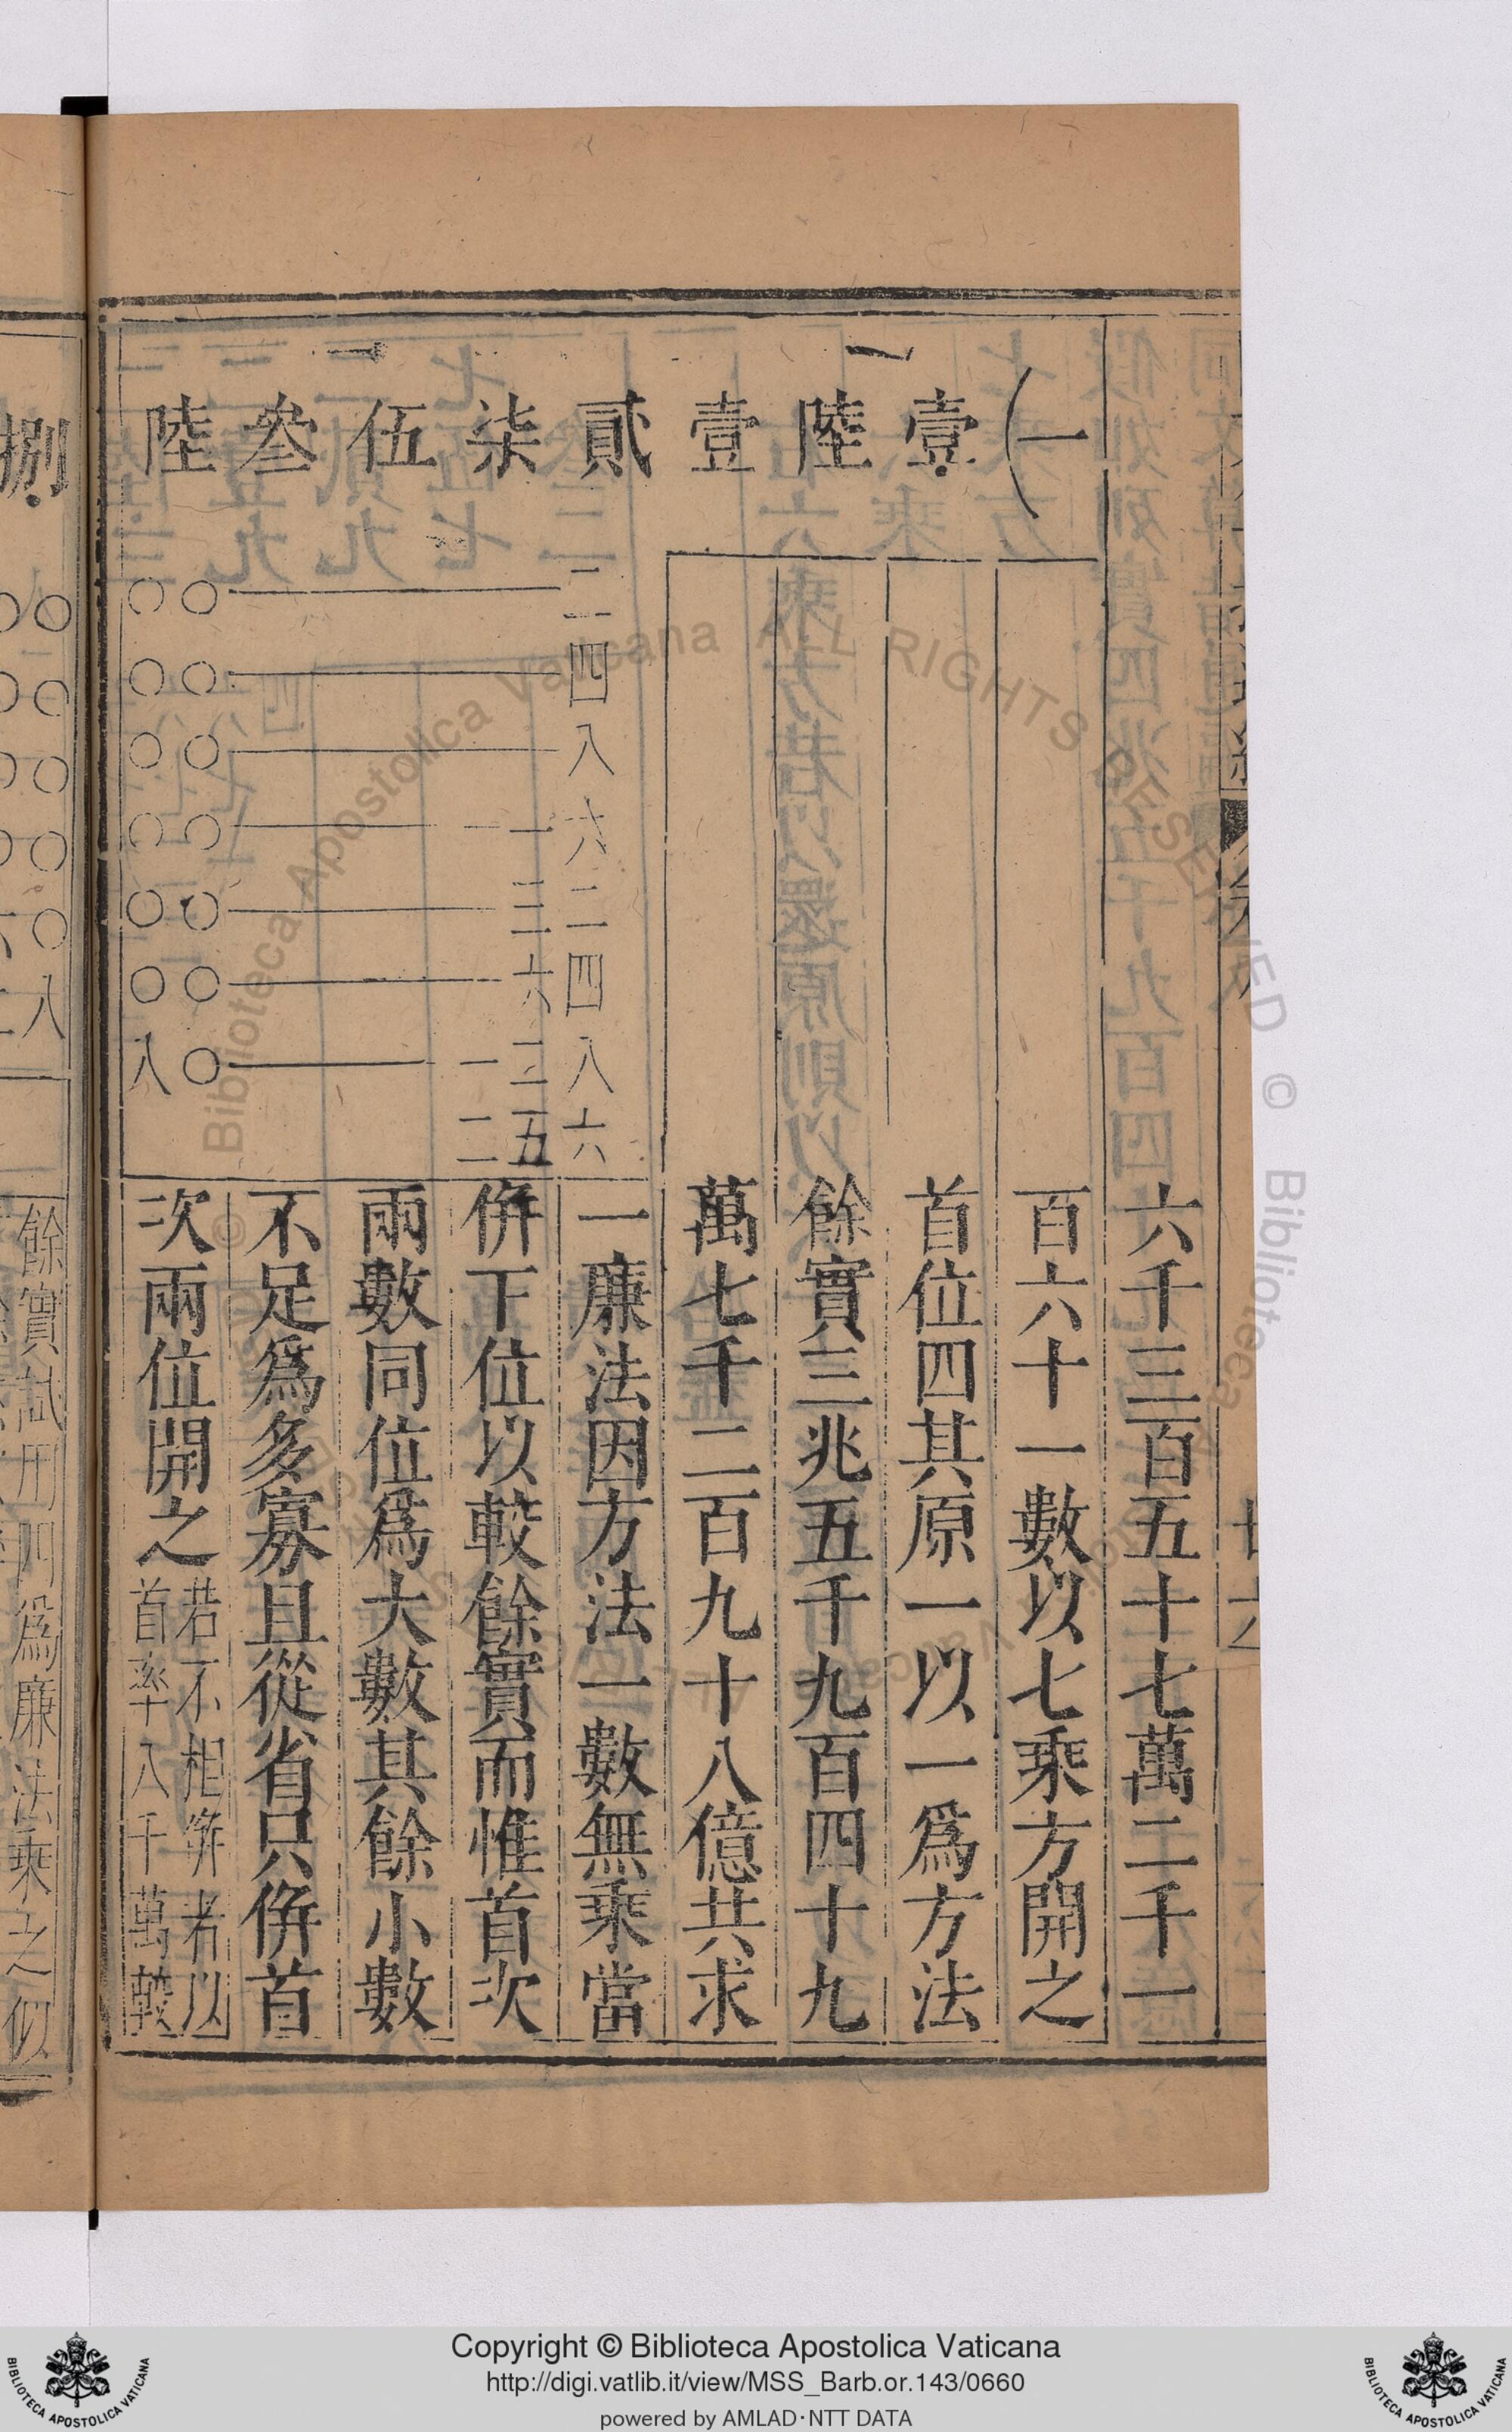 六千三百五十七萬二千一
百六十一數以七乘方開之
首位四其原一以一爲方法
餘實三兆五千九百四十九
萬七千二百九十八億共求
一廉法因方法一數無乘當
倂下位以較餘實而惟首次
兩數同位爲大數其餘小數
不足爲多寡且從省只倂首
次兩位開之
若不相倂者以
首率八千萬較
一
壹陸壹貳柒伍叁陸
捌
二二四八六二四八六
一三六二五
一一二
〇〇〇〇〇〇〇
〇〇〇〇〇〇八
餘實試用四爲廉法乘之似
Copyright © Biblioteca Apostolica Vaticana
http://digi.vatlib.it/view/MSS_Barb.or.143/0660
powered by AMLAD·NTT DATA
BIBLIOTECA APOSTOLICA VATICANA
BIBLIOTECA APOSTOLICA VATICANA